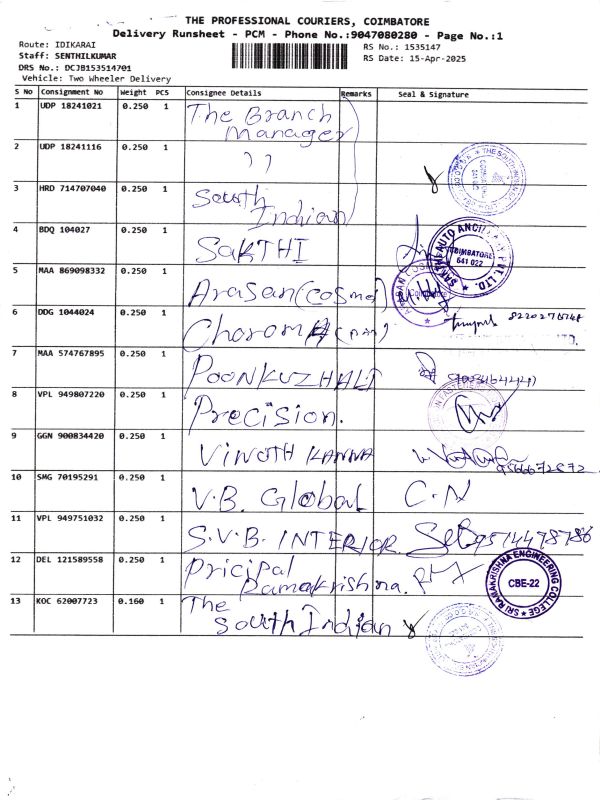 THE PROFESSIONAL COURIERS, COIMBATORE
Delivery Runsheet - PCM - Phone No.:9047080280 - Page No.:1
Route: IDIKARAI
RS No.: 1535147
Staff: SENTHILKUMAR
RS Date: 15-Apr-2025
DRS No.: DCJB153514701
Vehicle: Two Wheeler Delivery
S No Consignment No Weight PCS Consignee Details Remarks Seal & Signature
1 UDP 18241021 0.250 1 The Branch
Manager
2 UDP 18241116 0.250 1 ))
3 HRD 714707040 0.250 1 South
Indian
4 BDQ 104027 0.250 1 SAKTHI
SAKTHI AUTO ANCILLARY PVT. LTD.
COIMBATORE
641 022
5 MAA 869098332 0.250 1 Arasan (cosmo)
6 DDG 1044024 0.250 1
7 MAA 574767895 0.250 1 POONKUZHALI
8 VPL 949807220 0.250 1 Precision.
9 GGN 900834420 0.250 1 VINOTH KANNA
10 SMG 70195291 0.250 1 V.B. Global C.N
11 VPL 949751032 0.250 1 S.V.B. INTERIOR. 9514478786
12 DEL 121589558 0.250 1 Pricipal
Ramakrishna.
SRI RAMAKRISHNA ENGINEERING COLLEGE
CBE-22
13 KOC 62007723 0.160 1 The
South Indian